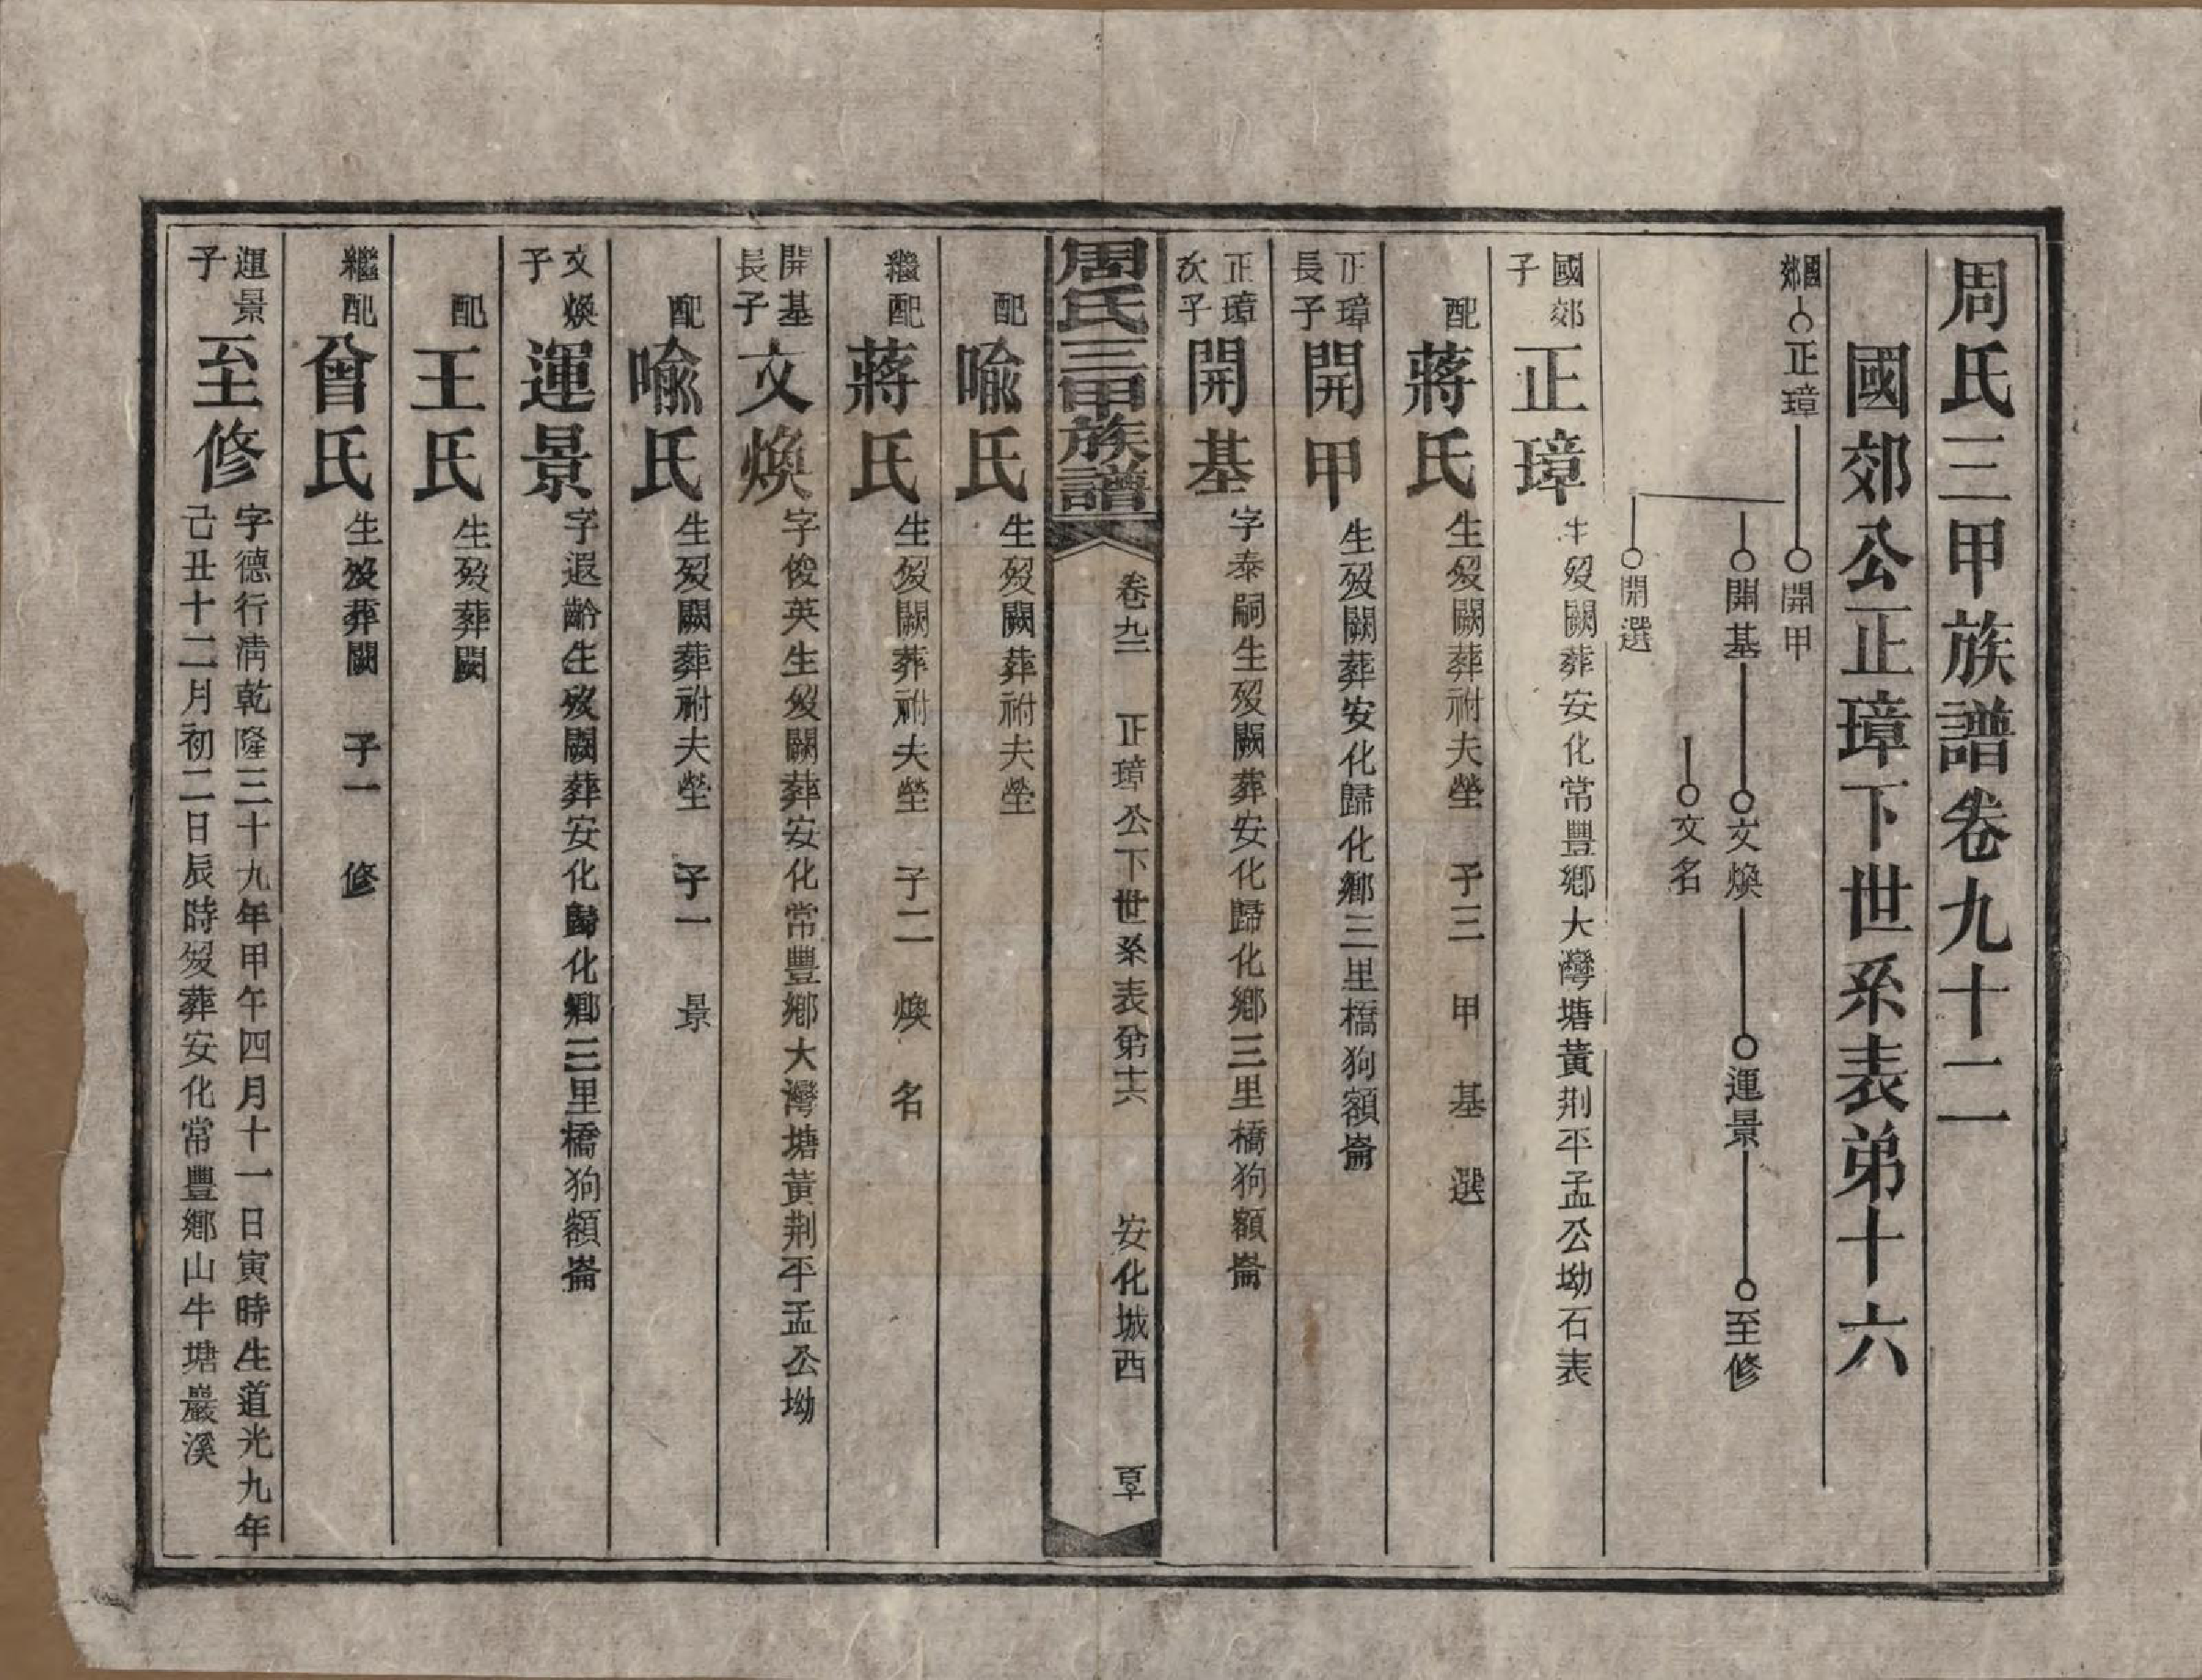 周氏三甲族譜卷九十二
國郊公正璋下世系表弟十六
國郊 正璋 開甲
開基 文煥 運景 至修
文名
開選
國郊子 正璋 生歿闕葬安化常豐鄉大灣塘黃荆平孟公坳石表
配 蔣氏 生歿闕葬祔夫塋 子三 甲 基 選
正璋長子 開甲 生歿闕葬安化歸化鄉三里橋狗額崙
正璋次子 開基 字泰嗣生歿闕葬安化歸化鄉三里橋狗額崙
周氏三甲族譜 卷九二 正璋公下世系表弟十六 安化城西
配 喻氏 生歿闕葬祔夫塋
繼配 蔣氏 生歿闕葬祔夫塋 子二 煥 名
開基長子 文煥 字俊英生歿闕葬安化常豐鄉大灣塘黃荆平孟公坳
配 喻氏 生歿闕葬祔夫塋 子一 景
文煥子 運景 字遐齡生歿闕葬安化歸化鄉三里橋狗額崙
配 王氏 生歿葬闕
繼配 曾氏 生歿葬闕 子一 修
運景子 至修 字德行清乾隆三十九年甲午四月十一日寅時生道光九年
己丑十二月初二日辰時歿葬安化常豐鄉山牛塘巖溪